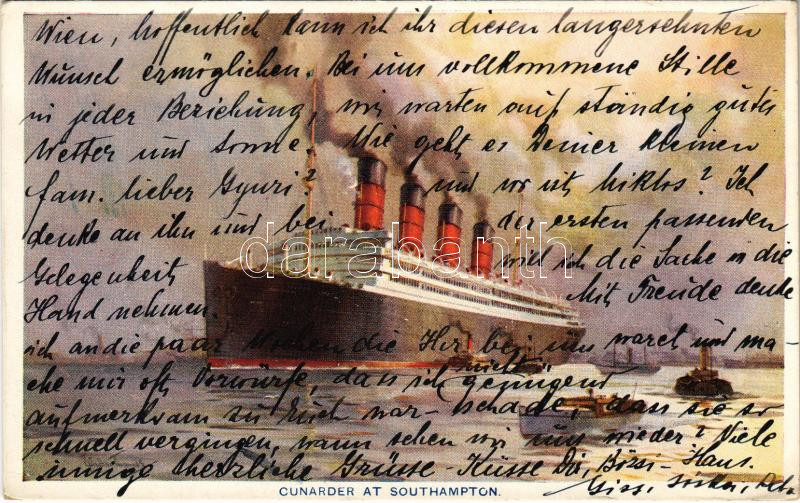 Wien, hoffentlich kann ich ihr diesen langersehnten
Wunsch ermöglichen. Bei uns vollkommene Stille
in jeder Beziehung, wir warten auf ständig gutes
Wetter und Sonne. Wie geht es Deiner kleinen
fam. lieber Gyuri? und wo ist Miklos? Ich
denke an ihn und bei der ersten passenden
Gelegenheit will ich die Sache in die
Hand nehmen. Mit Freude denke
ich an die paar Wochen die Ihr bei uns waret und ma-
che mir oft Vorwürfe, dass ich nicht genügend
aufmerksam zu Euch war - schade, dass sie so
schnell vergingen, wann sehen wir uns wieder? Viele
innige herzliche Grüsse - Küsse Dir, Bözsi - Hans.
darabanth
CUNARDER AT SOUTHAMPTON.